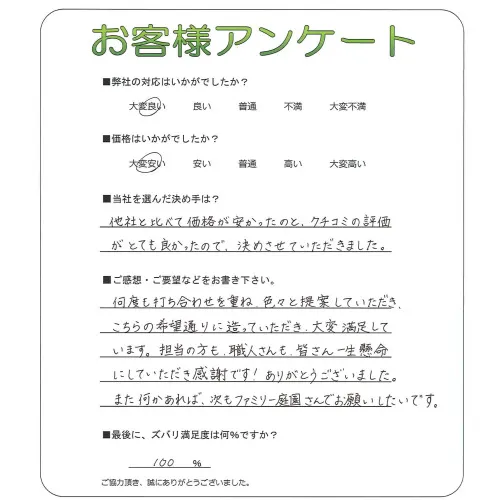 お客様アンケート
■弊社の対応はいかがでしたか？
大変良い 良い 普通 不満 大変不満
■価格はいかがでしたか？
大変安い 安い 普通 高い 大変高い
■当社を選んだ決め手は？
他社と比べて価格が安かったのと、クチコミの評価
がとても良かったので、決めさせていただきました。
■ご感想・ご要望などをお書き下さい。
何度も打ち合わせを重ね、色々と提案していただき、
こちらの希望通りに造っていただき、大変満足して
います。担当の方も、職人さんも、皆さん一生懸命
にしていただき感謝です！ありがとうございました。
また何かあれば、次もファミリー庭園さんでお願いしたいです。
■最後に、ズバリ満足度は何%ですか？
100 %
ご協力頂き、誠にありがとうございました。